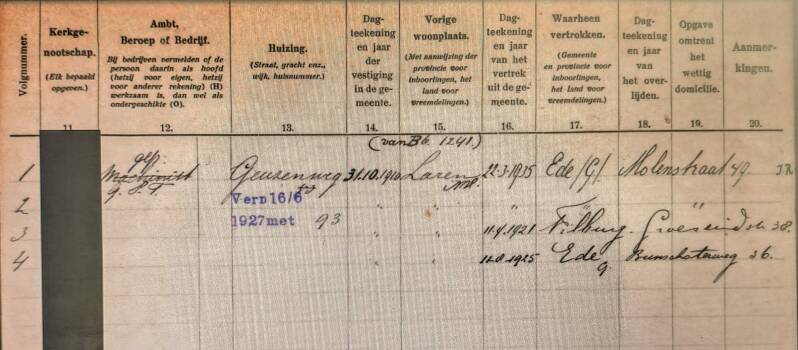 Volgnummer.
Kerkge-
nootschap.
(Elk bepaald
opgeven.)
11
Ambt,
Beroep of Bedrijf.
Bij bedrijven vermelden of de
persoon daarin als hoofd
(hetzij voor eigen, hetzij
voor anderer rekening) (H)
werkzaam is, dan wel als
ondergeschikte (O).
12.
Huizing.
(Straat, gracht enz.,
wijk, huisnummer.)
13.
Dag-
teekening
en jaar
der
vestiging
in de ge-
meente.
14.
Vorige
woonplaats.
(Met aanwijzing der
provincie voor
inboorlingen, het
land voor
vreemdelingen.)
15.
Dag-
teekening
en jaar
van het
vertrek
uit de ge-
meente.
16.
Waarheen
vertrokken.
(Gemeente
en provincie voor
inboorlingen,
het land voor
vreemdelingen.)
17.
Dag-
teekening
en jaar
van het
over-
lijden.
18.
Opgave
omtrent
het
wettig
domicilie.
19.
Aanmer-
kingen.
20.
(van Bb. 1241.)
gep.
1 Machinist Geuzenweg 31.10.1910 Laren 22-3-1935 Ede /G/ Molenstraat 49.
NH.
2 Vern 16/6 " " " "
1927 met 93
3 " " 11-4-1921 Tilburg.
4 " " 12.8.1925 Ede 36.
g.